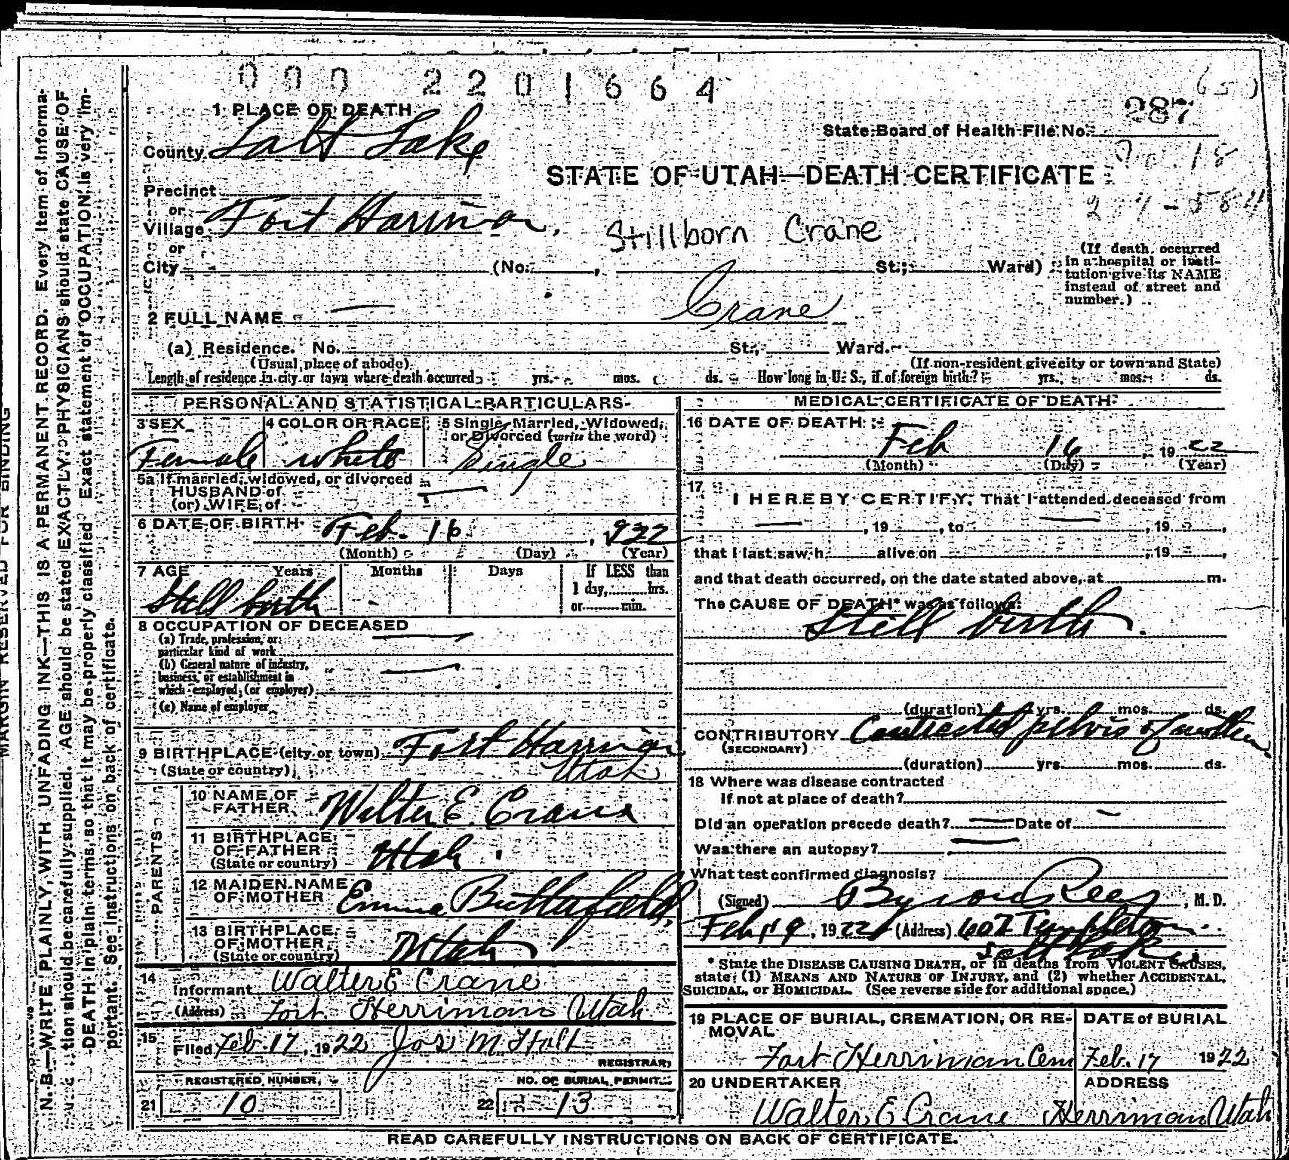 000 2201664
287
State Board of Health File No.
1 PLACE OF DEATH
County Salt Lake
STATE OF UTAH—DEATH CERTIFICATE
Precinct
or
Village Fort Harriman.
or
Stillborn Crane
City (No. , St.; Ward)
(If death occurred in a hospital or institution give its NAME instead of street and number.)
2 FULL NAME — Crane
(a) Residence. No. St., Ward.
(Usual place of abode) (If non-resident give city or town and State)
Length of residence in city or town where death occurred yrs. mos. ds. How long in U. S., if of foreign birth? yrs. mos. ds.
PERSONAL AND STATISTICAL PARTICULARS
3 SEX Female
4 COLOR OR RACE white
5 Single, Married, Widowed, or Divorced (write the word) Single
5a If married, widowed, or divorced
HUSBAND of
(or) WIFE of
6 DATE OF BIRTH Feb. 16, 922
(Month) (Day) (Year)
7 AGE Years Months Days If LESS than 1 day, hrs. or min.
Still birth
8 OCCUPATION OF DECEASED
(a) Trade, profession, or particular kind of work
(b) General nature of industry, business, or establishment in which employed, (or employer)
(c) Name of employer
9 BIRTHPLACE (city or town) Fort Harriman
(State or country) Utah
PARENTS
10 NAME OF FATHER Walter E. Crane
11 BIRTHPLACE OF FATHER (State or country) Utah
12 MAIDEN NAME OF MOTHER Emma Butterfield
13 BIRTHPLACE OF MOTHER (State or country) Utah
14 Informant Walter E Crane
(Address) Fort Herriman Utah
15 Filed Feb. 17, 1922 Jos M Holt
REGISTRAR
REGISTERED NUMBER, NO. OF BURIAL PERMIT
21 10 22 13
MEDICAL CERTIFICATE OF DEATH
16 DATE OF DEATH Feb 16 1922
(Month) (Day) (Year)
17 I HEREBY CERTIFY, That I attended deceased from
, 19 , to , 19 ,
that I last saw h alive on , 19 ,
and that death occurred, on the date stated above, at m.
The CAUSE OF DEATH* was as follows:
Still birth.
(duration) yrs. mos. ds.
CONTRIBUTORY Contracted pelvis of mother
(SECONDARY)
(duration) yrs. mos. ds.
18 Where was disease contracted
If not at place of death?
Did an operation precede death? Date of
Was there an autopsy?
What test confirmed diagnosis?
(Signed) Byron Rees, M. D.
Feb 19, 1922 (Address) 607 Templeton
Salt Lake
* State the DISEASE CAUSING DEATH, or in deaths from VIOLENT CAUSES, state (1) MEANS AND NATURE OF INJURY, and (2) whether ACCIDENTAL, SUICIDAL, or HOMICIDAL. (See reverse side for additional space.)
19 PLACE OF BURIAL, CREMATION, OR REMOVAL DATE of BURIAL
Fort Herriman Cem Feb. 17 1922
20 UNDERTAKER ADDRESS
Walter E Crane Herriman Utah
READ CAREFULLY INSTRUCTIONS ON BACK OF CERTIFICATE.
MARGIN RESERVED FOR BINDING
N. B.—WRITE PLAINLY, WITH UNFADING INK—THIS IS A PERMANENT RECORD. Every item of information should be carefully supplied. AGE should be stated EXACTLY. PHYSICIANS should state CAUSE OF DEATH in plain terms, so that it may be properly classified. Exact statement of OCCUPATION is very important. See instructions on back of certificate.